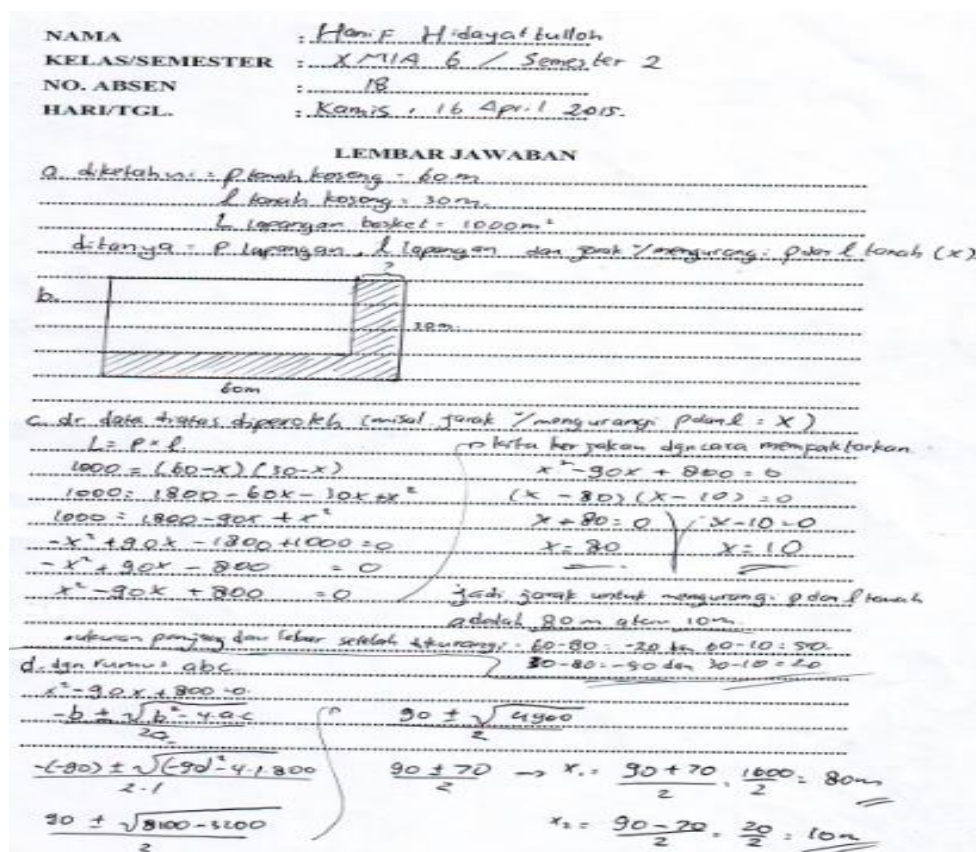 NAMA : Hanif Hidayattulloh
KELAS/SEMESTER : X MIA 6 / Semester 2
NO. ABSEN : 18
HARI/TGL. : Kamis, 16 April 2015.
LEMBAR JAWABAN
a. diketahui = p tanah kosong = 60 m
l tanah kosong = 30 m.
L lapangan basket = 1000 m²
ditanya = p lapangan, l lapangan dan jarak u/mengurangi p dan l tanah (x)
b.
?
30m.
60m
c. dr data diatas diperoleh (misal jarak u/mengurangi p dan l = x)
L = p × l
1000 = (60-x) (30-x)
1000 = 1800 - 60x - 30x + x²
1000 = 1800 - 90x + x²
-x² + 90x - 1800 + 1000 = 0
-x² + 90x - 800 = 0
x² - 90x + 800 = 0
kita kerjakan dgn cara mempaktorkan
x² - 90x + 800 = 0
(x - 80) (x - 10) = 0
x + 80 = 0 x - 10 = 0
x = 80 x = 10
jadi jarak untuk mengurangi p dan l tanah
adalah 80 m atau 10 m.
ukuran panjang dan lebar setelah dikurangi = 60-80 = -20 dan 60-10 = 50.
30-80 = -50 dan 30-10 = 20
d. dgn rumus abc
x² - 90x + 800 = 0
-b ± √b² - 4.a.c / 2a
-(-90) ± √(-90)² - 4.1.800 / 2.1
90 ± √8100 - 3200 / 2
90 ± √4900 / 2
90 ± 70 / 2 → x₁ = 90 + 70 / 2 = 1600 / 2 = 80m
x₂ = 90 - 70 / 2 = 20 / 2 = 10m